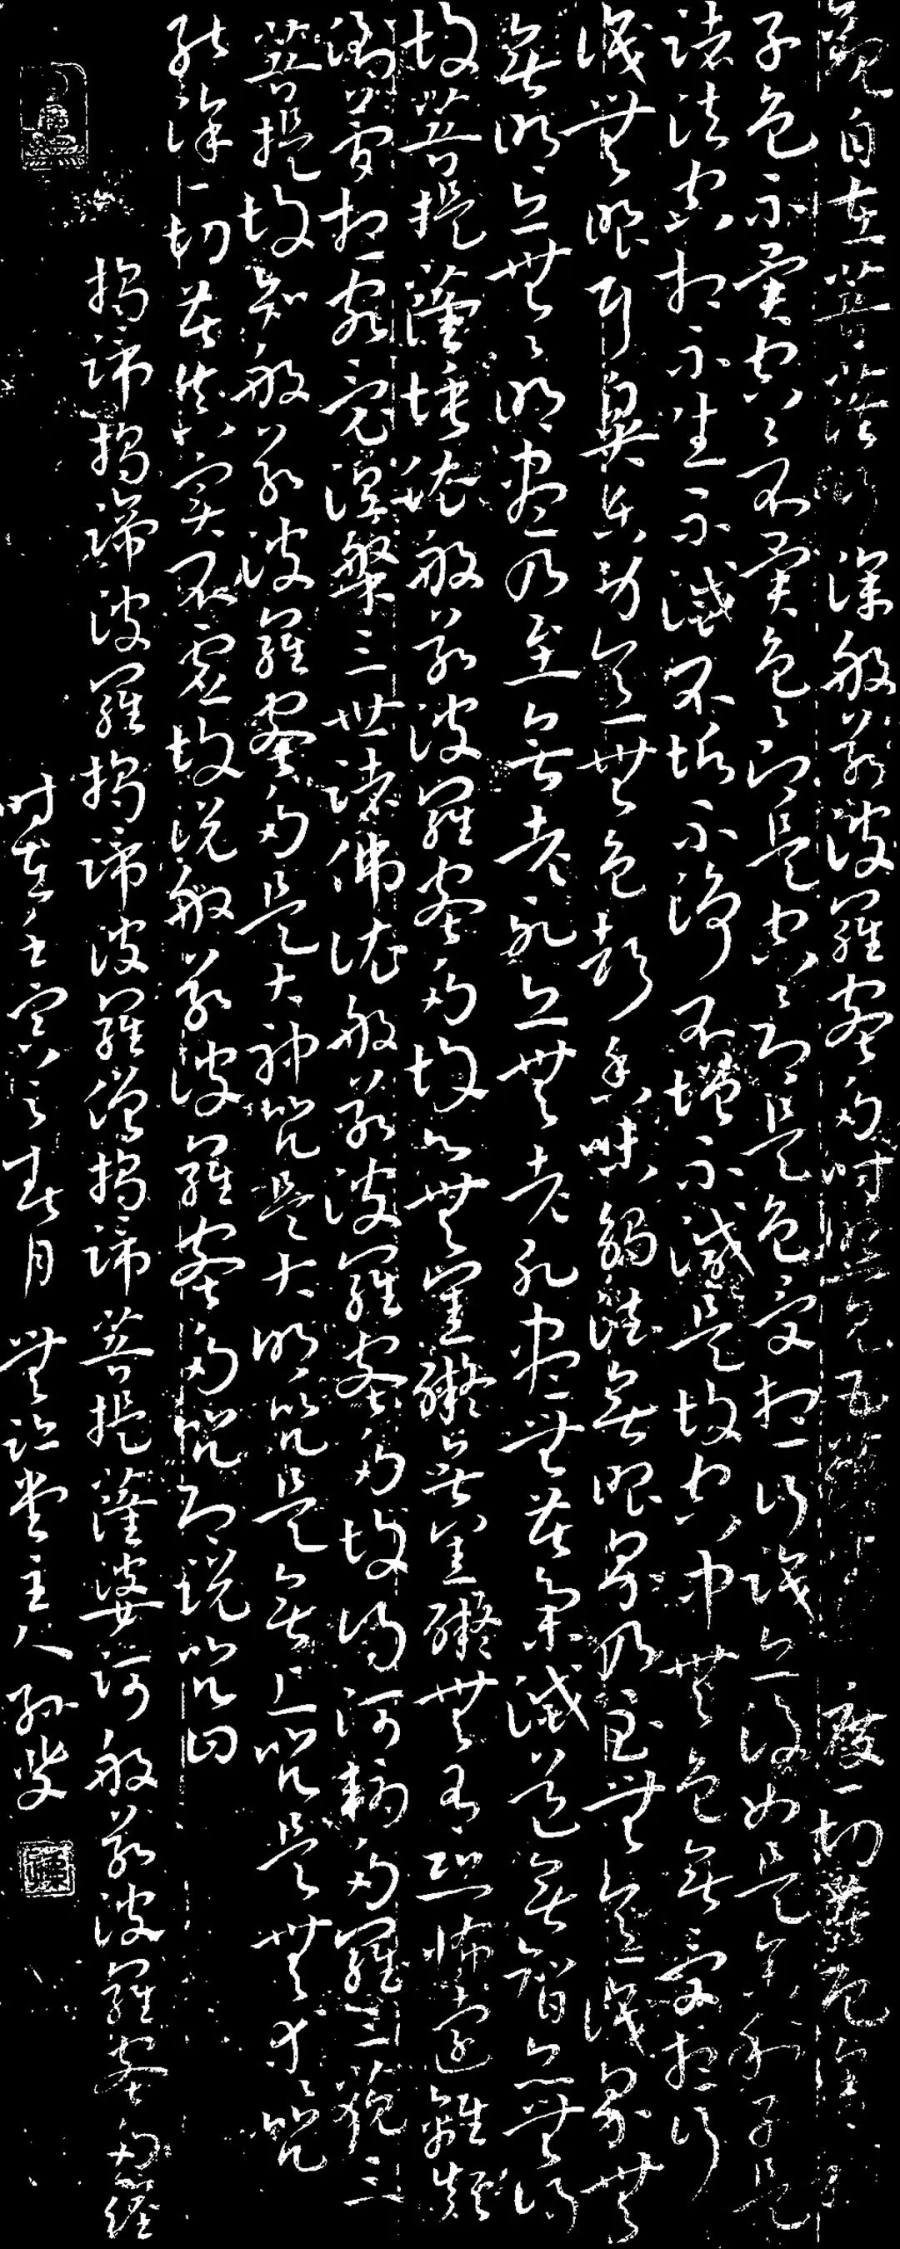 觀自在菩薩行深般若波羅蜜多時照見五蘊皆空度一切苦厄舍利
子色不異空空不異色色即是空空即是色受想行識亦復如是舍利子是
諸法空相不生不滅不垢不淨不增不減是故空中無色無受想行
識無眼耳鼻舌身意無色聲香味觸法無眼界乃至無意識界無
無明亦無無明盡乃至無老死亦無老死盡無苦集滅道無智亦無得
故菩提薩埵依般若波羅蜜多故心無罣礙無罣礙無有恐怖遠離顛
倒夢想究竟涅槃三世諸佛依般若波羅蜜多故得阿耨多羅三藐三
菩提故知般若波羅蜜多是大神咒是大明咒是無上咒是無等等咒
能除一切苦真實不虛故說般若波羅蜜多咒即說咒曰
揭諦揭諦波羅揭諦波羅僧揭諦菩提薩婆訶般若波羅蜜多經
時在壬寅之春月 無 堂主人孫